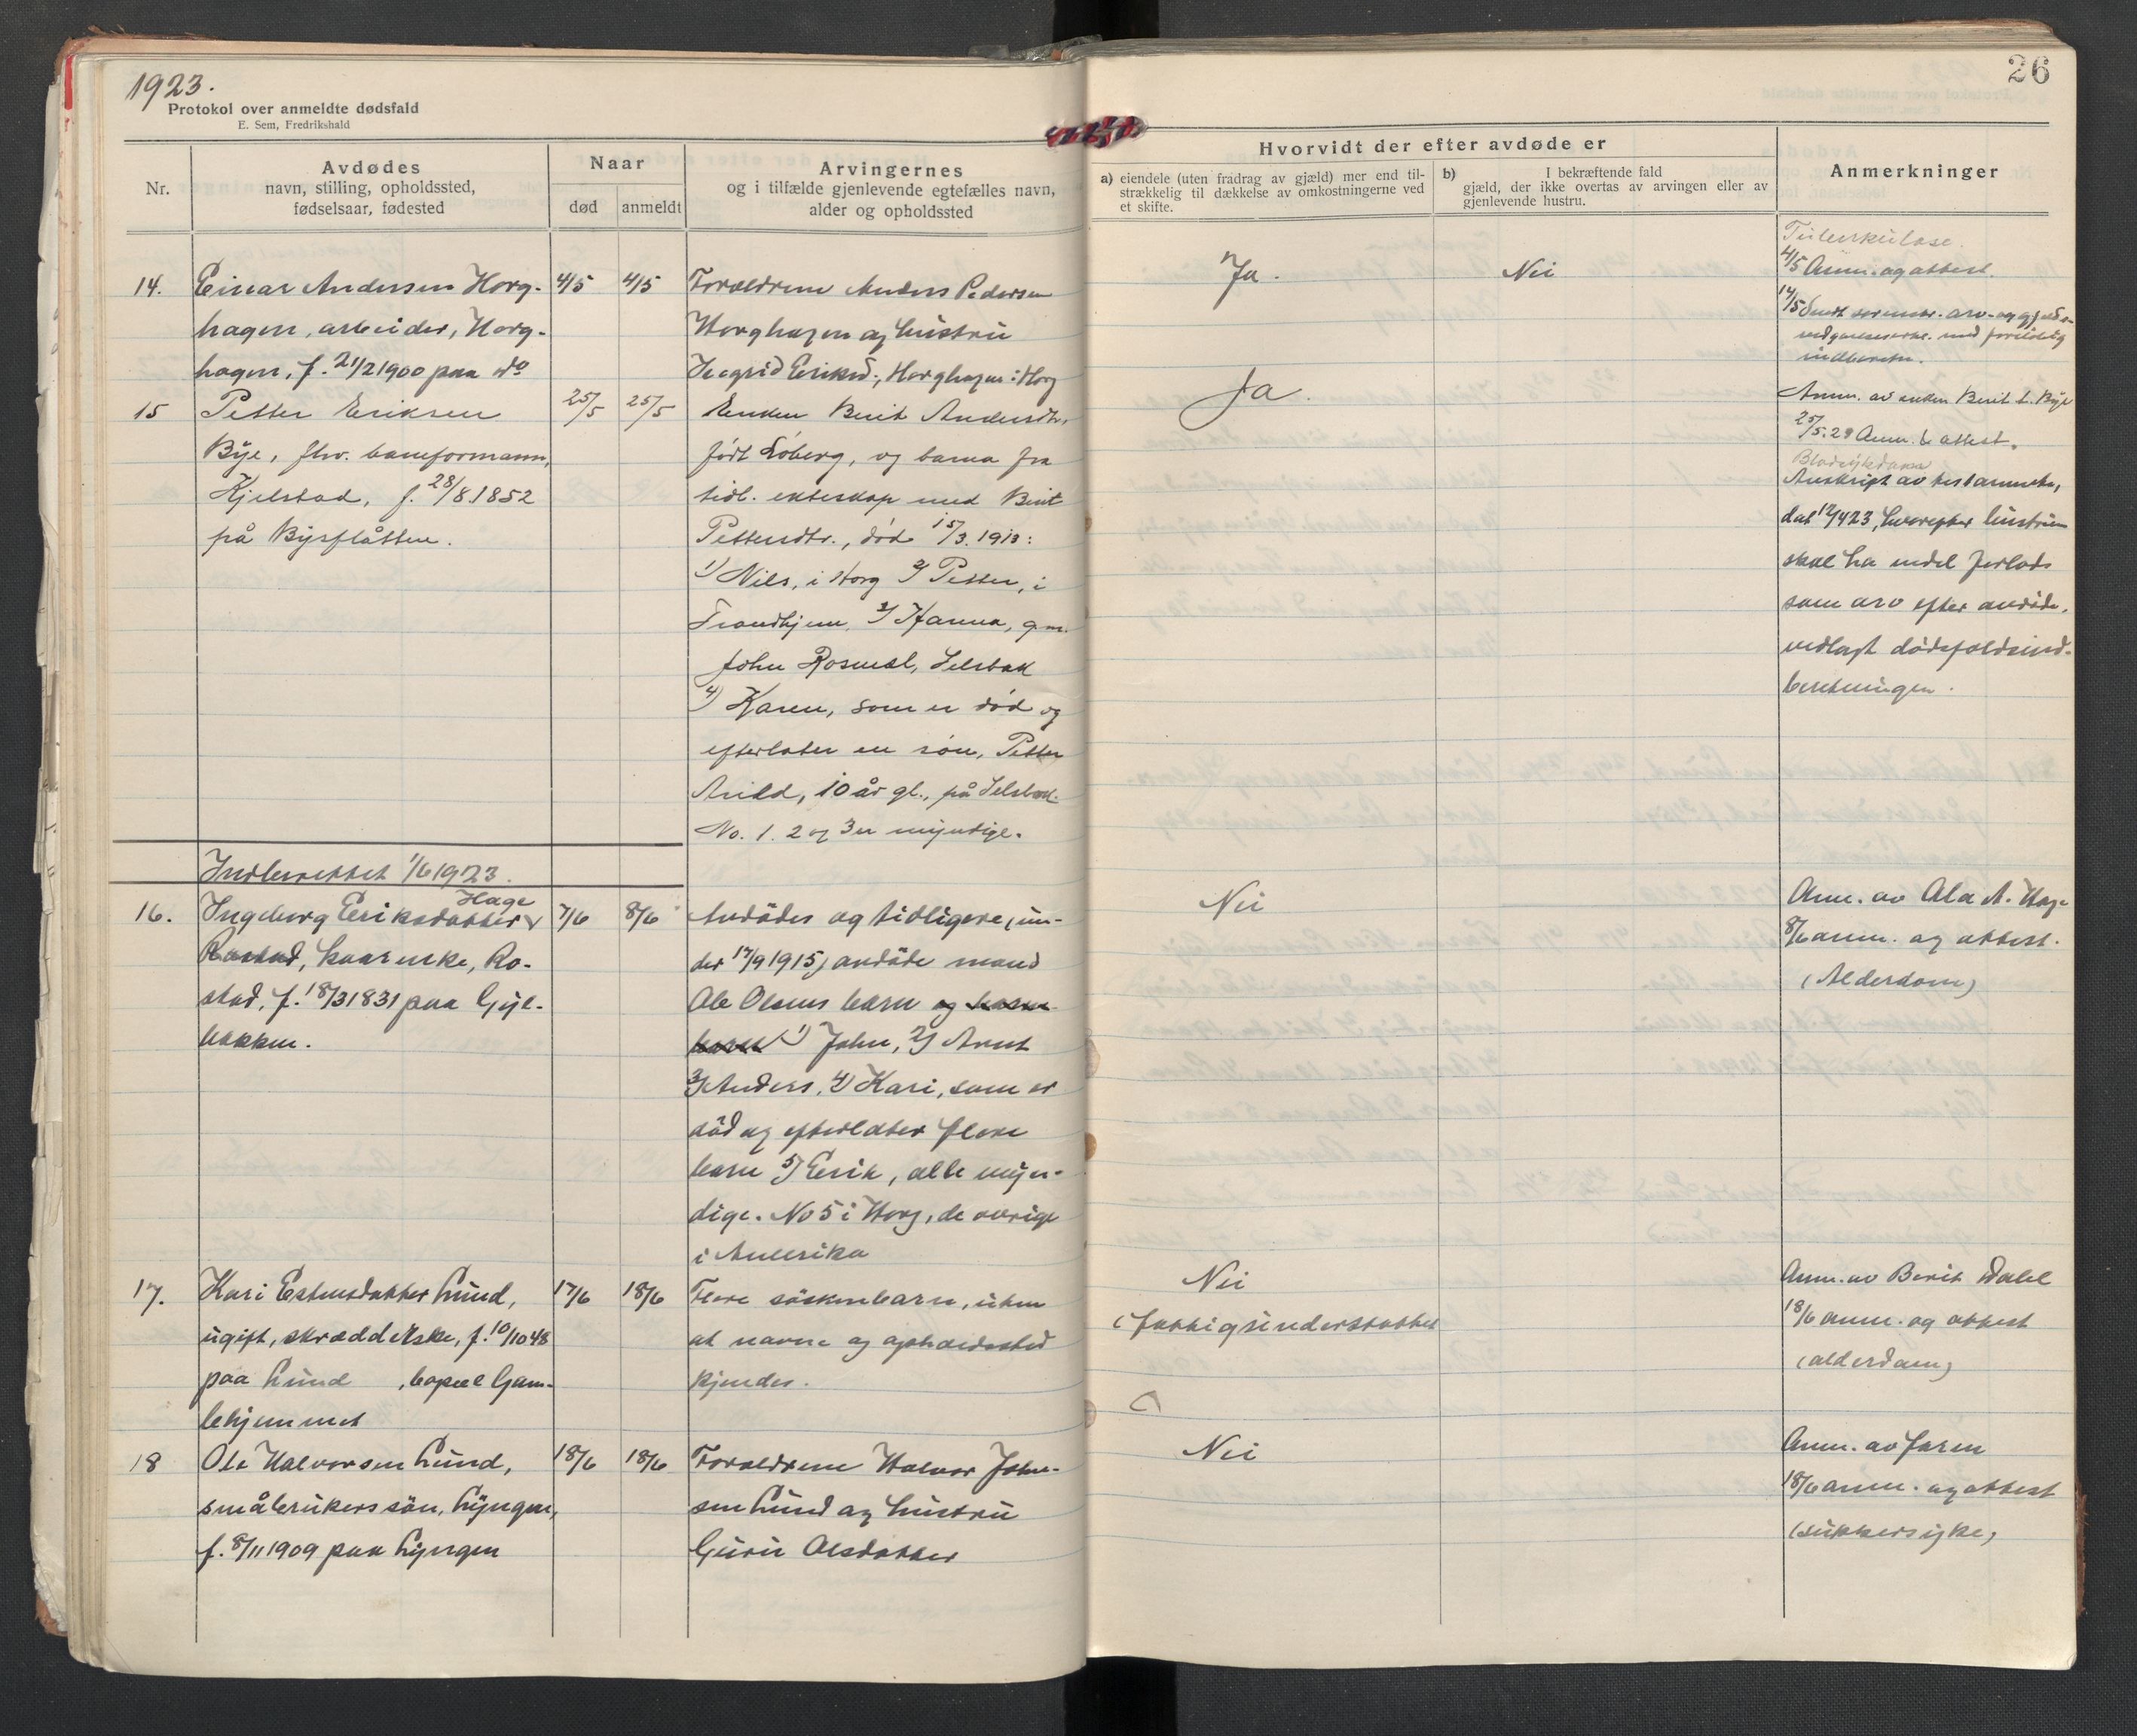 1923.
Protokol over anmeldte dødsfald
E. Sem, Fredrikshald
26
Nr.
Avdødes
navn, stilling, opholdssted,
fødselsaar, fødested
Naar
død
anmeldt
Arvingernes
og i tilfælde gjenlevende egtefælles navn,
alder og opholdssted
Hvorvidt der efter avdøde er
a) eiendele (uten fradrag av gjæld) mer end til-
strækkelig til dækkelse av omkostningerne ved
et skifte.
b) I bekræftende fald
gjæld, der ikke overtas av arvingen eller av
gjenlevende hustru.
Anmerkninger
14.
Einar Andersen Horg-
hagen, arbeider, Horg-
hagen, f. 21/2 1900 paa do
4/5
4/5
Forældrene Anders Pedersen
Horghagen og hustru
Ingrid Eriksd., Horghagen i Horg
Ja.
Nei
Tuberkulose.
4/5 Anm. og attest.
14/5 Sendt arv- og gjelds-
med foreløbig
indberetn.
15
Petter Eriksen
Bye, fhv. baneformann,
Kjelstad, f. 28/8 1852
på Bysflåtten.
25/5
25/5
Enken Berit Andersdtr.,
født Løberg, og barna fra
tidl. ekteskap med Berit
Pettersdtr., død 15/3. 1913:
1) Nils, i Horg 2) Petter, i
Trondhjem, 3) Hanna, gm.
John Rosmæl, Selsbak
4) Karen, som er død og
efterlater en søn, Petter
Arild, 10 år gl., på Selsbak.
No. 1. 2 og 3 er myndige.
Ja.
Anm. av enken Berit L. Bye
25/5.23 Anm. & attest.
Blodsykdom
Avskrift av testamente,
dat 12/4 23, hvorefter hustruen
skal ha endel forlods
som arv efter avdøde,
vedlagt dødsfaldsind-
beretningen.
Indberettet 1/6 1923.
16.
Hage
Ingeborg Eriksdatter
Rostad, kaarenke, Ro-
stad, f. 18/3 1831 paa Gyl-
bakken.
7/6
8/6
Avdødes og tidligere, un-
der 17/9 1915, avdøde mand
Ole Olsens barn og barne
barn 1) John, 2) Arnt
3) Anders, 4) Kari, som er
död og efterlater flere
barn 5) Erik, alle myn-
dige. No 5 i Horg, de øvrige
i Amerika
Nei
Anm. av Ola A. Hage
8/6 anm. og attest.
(Alderdom)
17.
Kari Estensdatter Lund,
ugift, skrædderske, f. 10/10 48
paa Lund, bopæl Gam-
lehjemmet
17/6
18/6
Flere söskenbarn, uten
at navne og opholdssted
kjendes.
Nei
(fattigunderstöttet
Anm. av Berit Dahl
18/6 anm. og attest
(alderdom)
18
Ole Halvorsen Lund,
småbrukers sön, Lyngen,
f. 8/11 1909 paa Lyngen
18/6
18/6
Forældrene Halvor John-
sen Lund og hustru
Guru Olsdatter
Nei
Anm. av faren
18/6 anm. og attest
(sukkersyke)